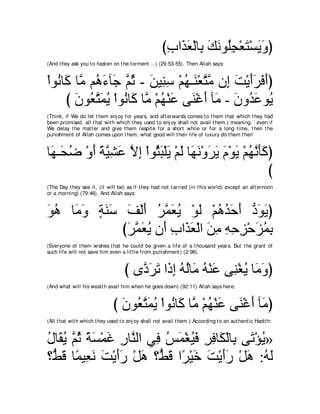 (وَيَسْتَعْجِلُونَكَ بِالْعَذَابِ)
(And they ask you to hasten on the torment…) (29:53-55). Then Allah says:
(أَفَرَأَيْتَ إِن مَّتَّعْنَـهُمْ سِنِينَ - ثُمَّ جَآءَهُم مَّا كَانُواْ
يُوعَدُونَ - مَآ أَغْنَى عَنْهُمْ مَّا كَانُواْ يُمَتَّعُونَ )
(Think, if We do let them enjoy for years, and afterwards comes to them that which they had been promised, all that with which they used to enjoy shall not avail them.) meaning, `even if We delay the matter and give them respite for a short while or for a long time, then the punishment of Allah comes upon them, what good will their life of luxury do them then'
(كَأَنَّهُمْ يَوْمَ يَرَوْنَهَا لَمْ يَلْبَثُواْ إِلاَّ عَشِيَّةً أَوْ ضُحَـهَا
)
(The Day they see it, (it will be) as if they had not tarried (in this world) except an afternoon or a morning) (79:46). And Allah says:
(يَوَدُّ أَحَدُهُمْ لَوْ يُعَمَّرُ أَلْفَ سَنَةٍ وَمَا هُوَ
بِمُزَحْزِحِهِ مِنَ الْعَذَابِ أَن يُعَمَّرَ)
(Everyone of them wishes that he could be given a life of a thousand years. But the grant of such life will not save him even a little from punishment) (2:96).
(وَمَا يُغْنِى عَنْهُ مَالُهُ إِذَا تَرَدَّى )
(And what will his wealth avail him when he goes down) (92:11) Allah says here:
(مَآ أَغْنَى عَنْهُمْ مَّا كَانُواْ يُمَتَّعُونَ )
(All that with which they used to enjoy shall not avail them.) According to an authentic Hadith:
«يُؤْتَى بِالْكَافِرِ فَيُغْمَسُ فِي النَّارِ غَمْسَةً ثُمَّ يُقَالُ
لَهُ: هَلْ رَأَيْتَ خَيْرًا قَطُّ؟ هَلْ رَأَيْتَ نَعِيمًا قَطُّ؟